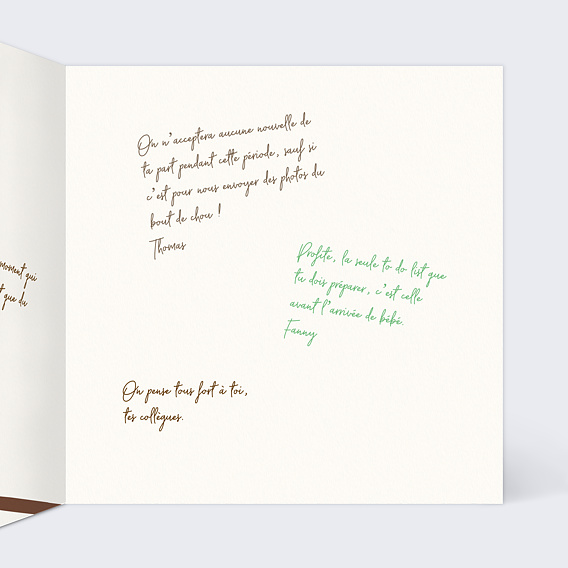 moment qui
que du
On n'acceptera aucune nouvelle de
ta part pendant cette période, sauf si
c'est pour nous envoyer des photos du
bout de chou !
Thomas
Profite, la seule to do list que
tu dois préparer, c'est celle
avant l'arrivée de bébé.
Fanny
On pense tous fort à toi,
tes collègues.